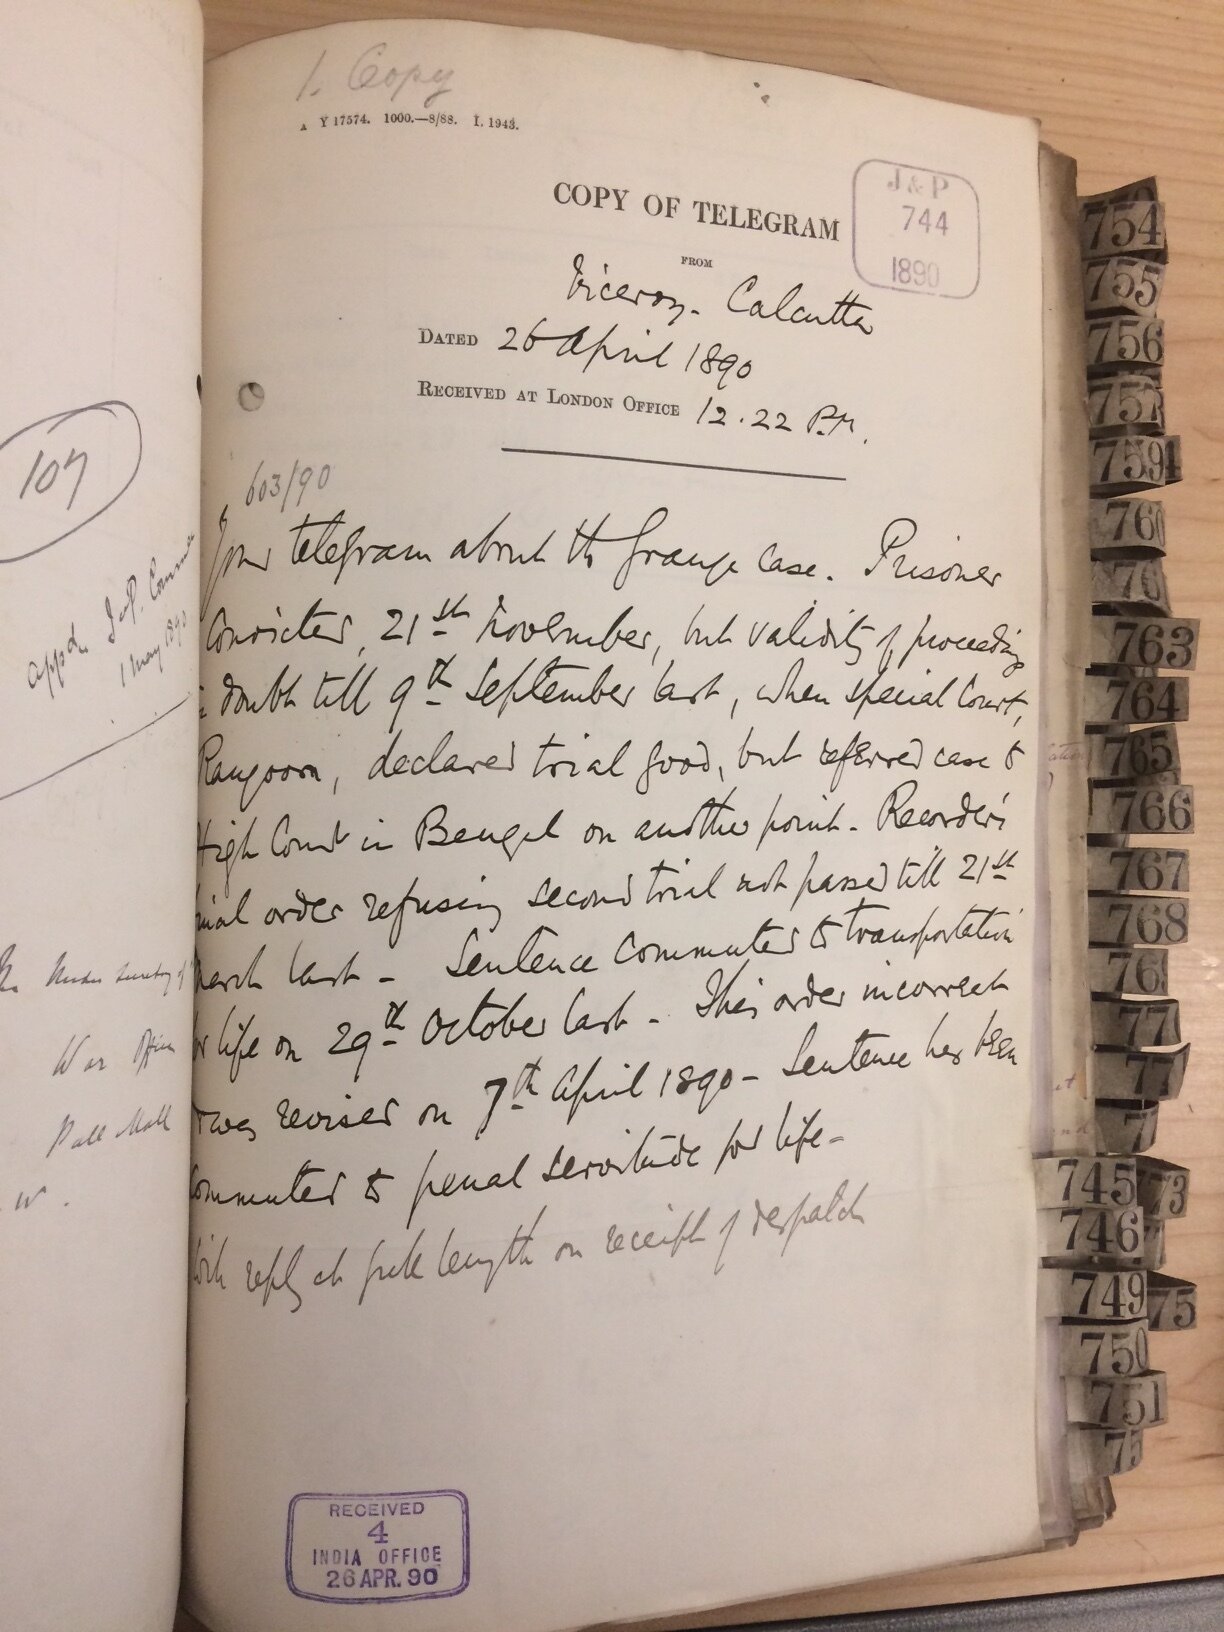 1. Copy
A Y 17574. 1000.—8/88. I. 1943.
J & P
744
1890
COPY OF TELEGRAM
FROM
Viceroy - Calcutta
DATED 26 April 1890
RECEIVED AT LONDON OFFICE 12.22 P.M.
603/90
Your telegram about the Grange case. Prisoner
convicted, 21st November, but validity of proceedings
in doubt till 9th September last, when Special Court,
Rangoon, declared trial good, but referred case to
High Court in Bengal on another point - Recorder's
final order refusing second trial not passed till 21st
March last - Sentence commuted to transportation
for life on 29th October last - This order incorrect
& was revised on 7th April 1890 - Sentence has been
commuted to penal servitude for life -
Will reply at full length on receipt of despatch
RECEIVED
4
INDIA OFFICE
26 APR. 90
107
appd. J & P. Committee
1 May 1890
The Under Secretary of
War Office
Pall Mall
W.
754
755
756
757
759
760
76
763
764
765
766
767
768
769
77
77
7
745
73
746
7
749
75
750
751
75